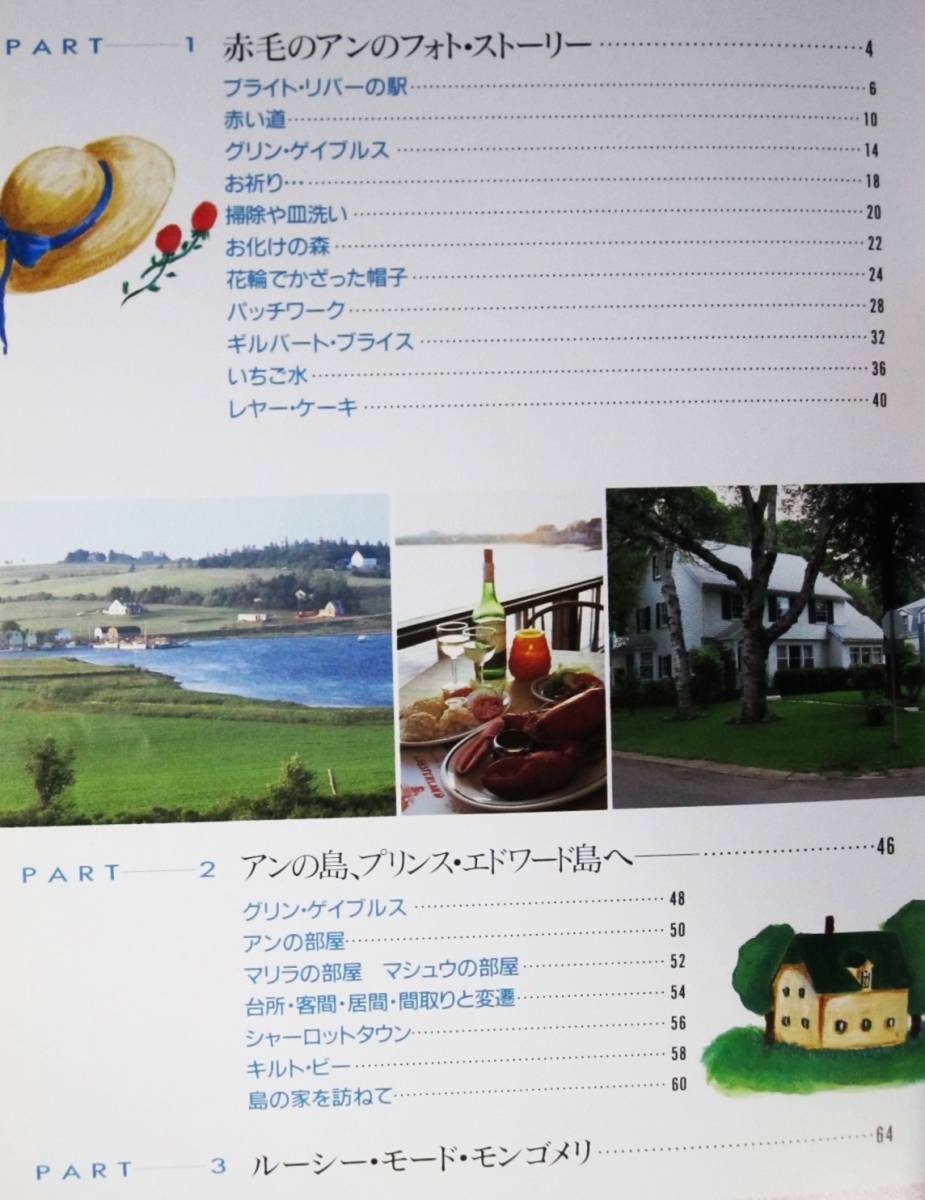 PART 1 赤毛のアンのフォト・ストーリー 4
ブライト・リバーの駅 6
赤い道 10
グリン・ゲイブルス 14
お祈り… 18
掃除や皿洗い 20
お化けの森 22
花輪でかざった帽子 24
パッチワーク 28
ギルバート・ブライス 32
いちご水 36
レヤー・ケーキ 40
PART 2 アンの島、プリンス・エドワード島へ 46
グリン・ゲイブルス 48
アンの部屋 50
マリラの部屋 マシュウの部屋 52
台所・客間・居間・間取りと変遷 54
シャーロットタウン 56
キルト・ビー 58
島の家を訪ねて 60
PART 3 ルーシー・モード・モンゴメリ 64